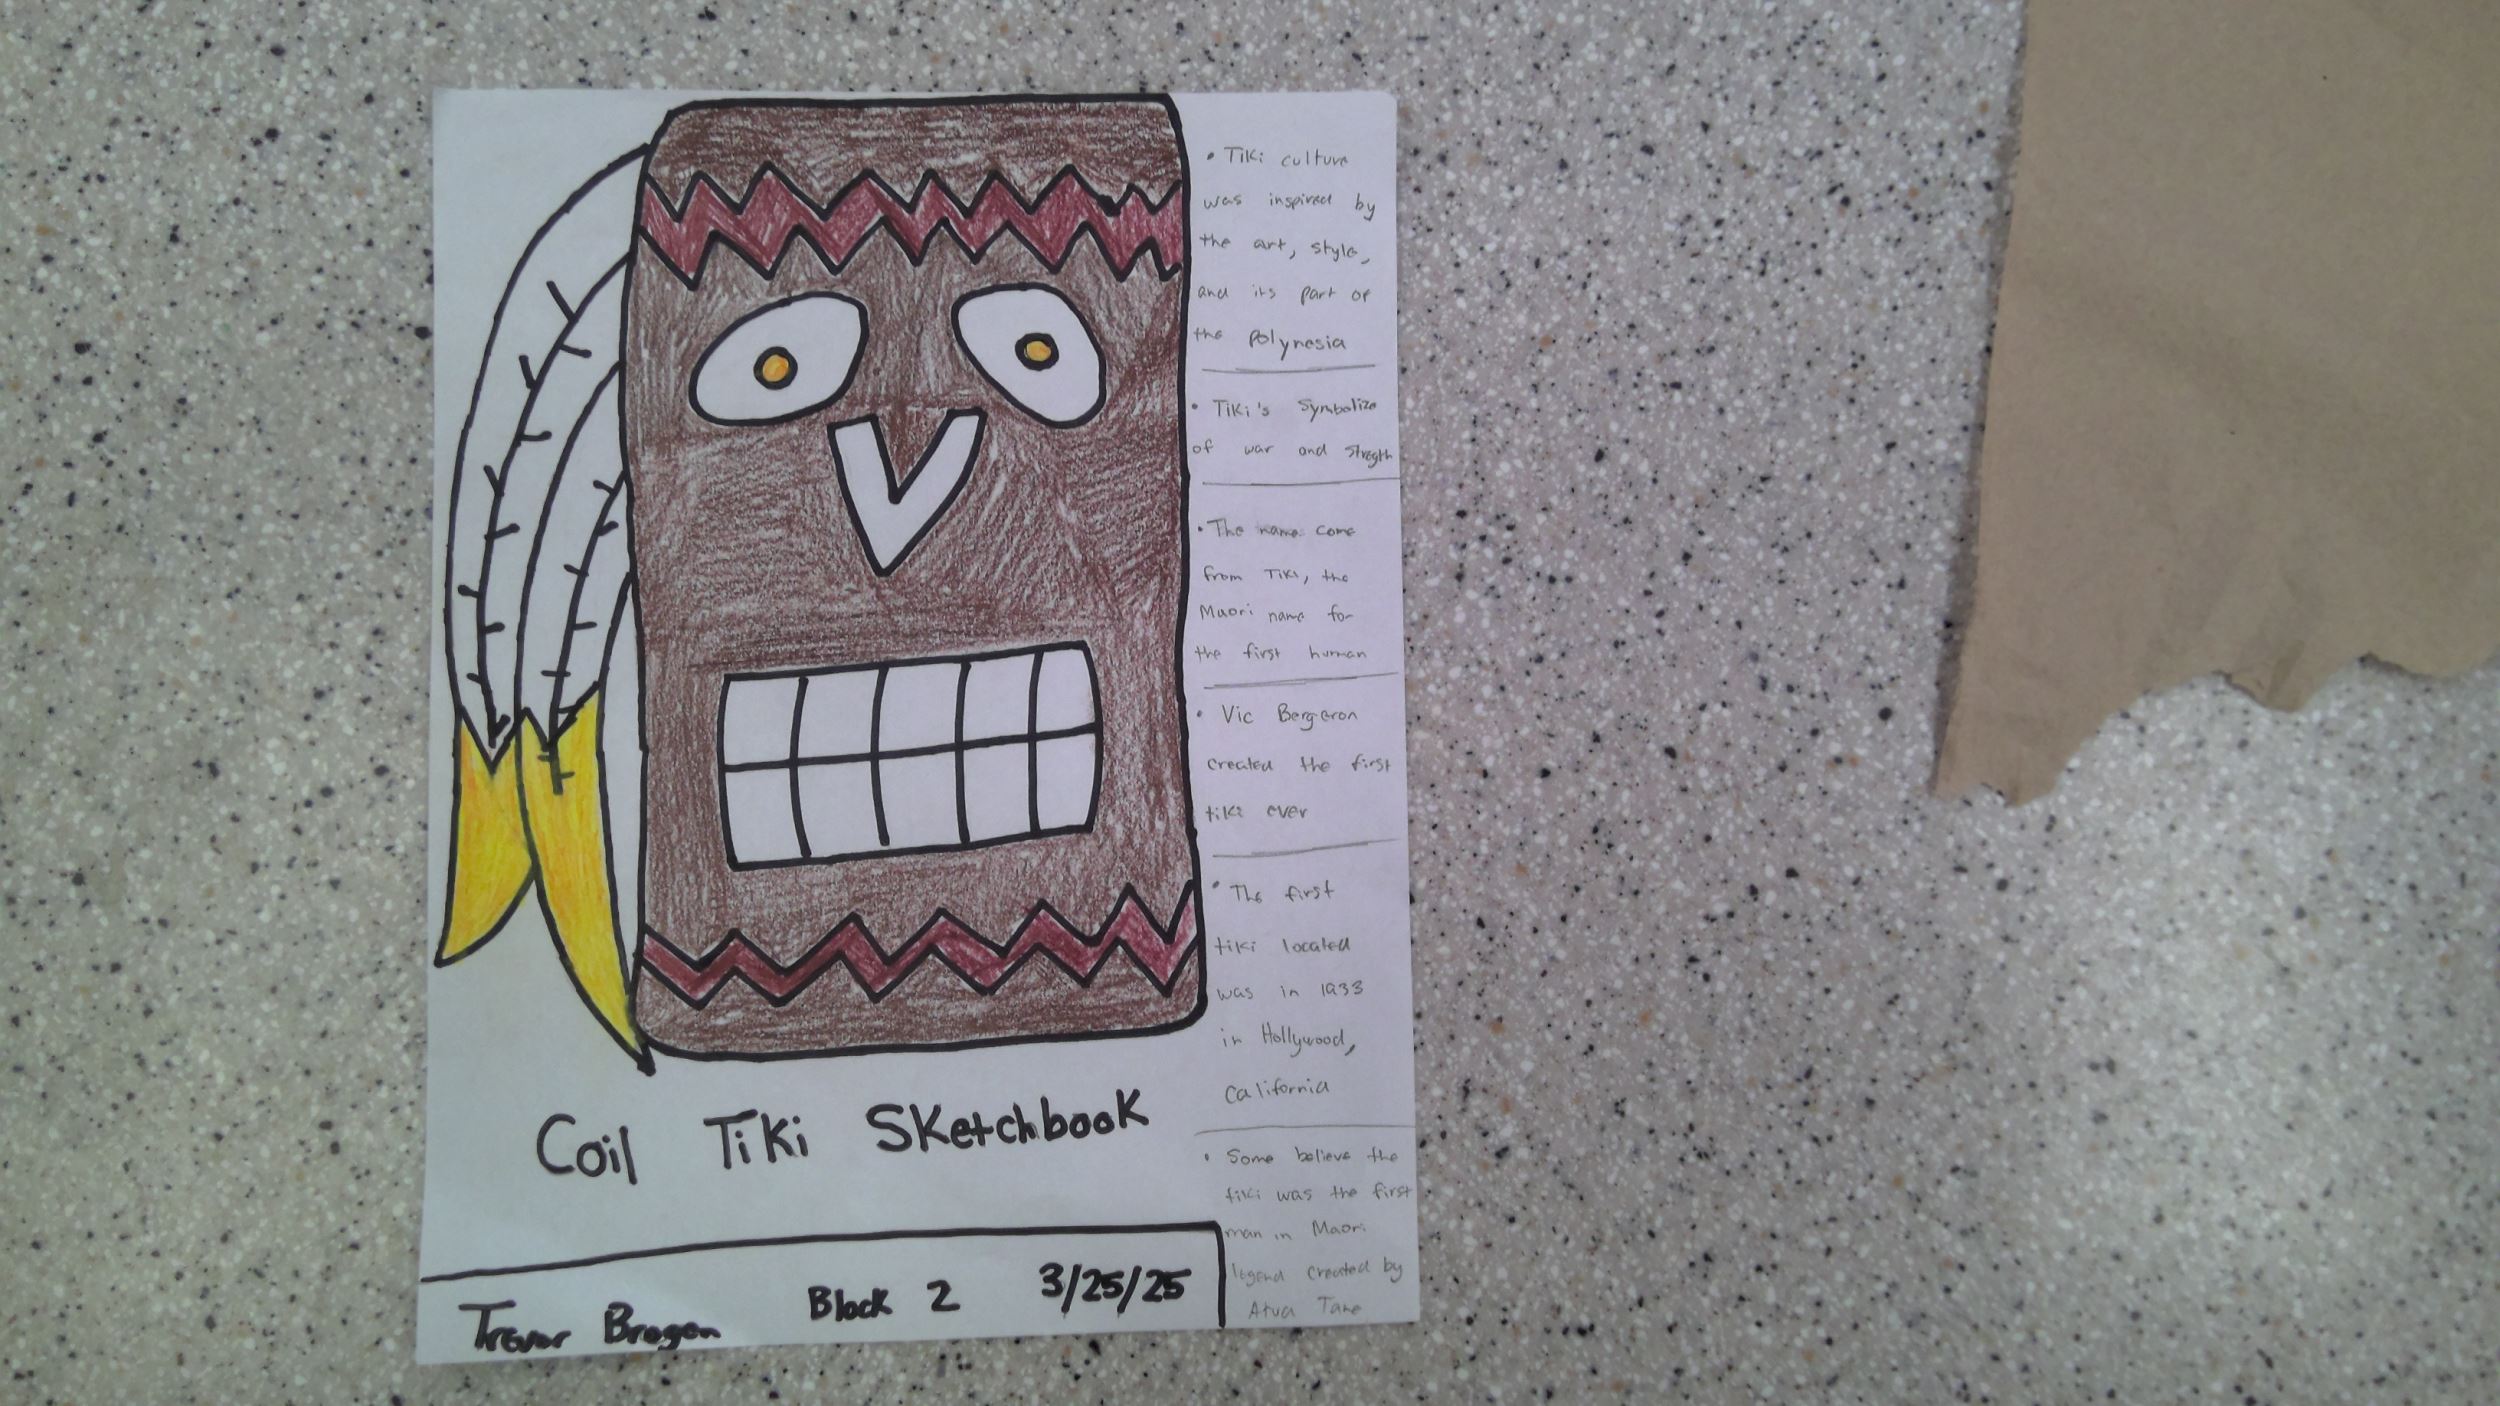 • Tiki culture
was inspired by
the art, style,
and its part of
the Polynesia
• Tiki's Symbolize
of war and stregth
• The name come
from Tiki, the
Maori name for
the first human
• Vic Bergeron
created the first
tiki ever
• The first
tiki located
was in 1933
in Hollywood,
California
• Some believe the
tiki was the first
man in Maori
legend created by
Atua Tane
Coil Tiki Sketchbook
Trevor Brogan Block 2 3/25/25